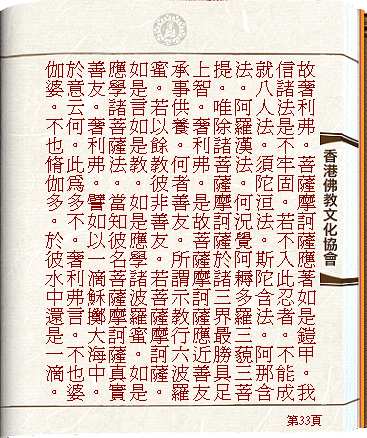 故奢利弗。菩薩摩訶薩應著如是鎧甲。我
信諸法是不牢固。若不入此忍者。不能成
就八人法。須陀洹法。斯陀含法。阿那含
法。阿羅漢法。何況覺阿耨多羅三藐三菩
提。唯除諸菩薩摩訶薩於諸三界最勝具足
上智。奢利弗。是故菩薩摩訶薩應近善友
承事供養。何者善友。所謂示教行六波羅
蜜。若以餘教彼非善友。若菩薩摩訶薩。
如是言如是教。如是應學諸波羅蜜。如是
應學諸菩薩法。當知彼名菩薩摩訶薩真實
善友。奢利弗。譬如以一滴穌擲大海中。
於意云何。此爲多不。奢利弗言。不也婆
伽婆。不也脩伽多。於彼水中還是一滴。
香港佛教文化協會
第33頁